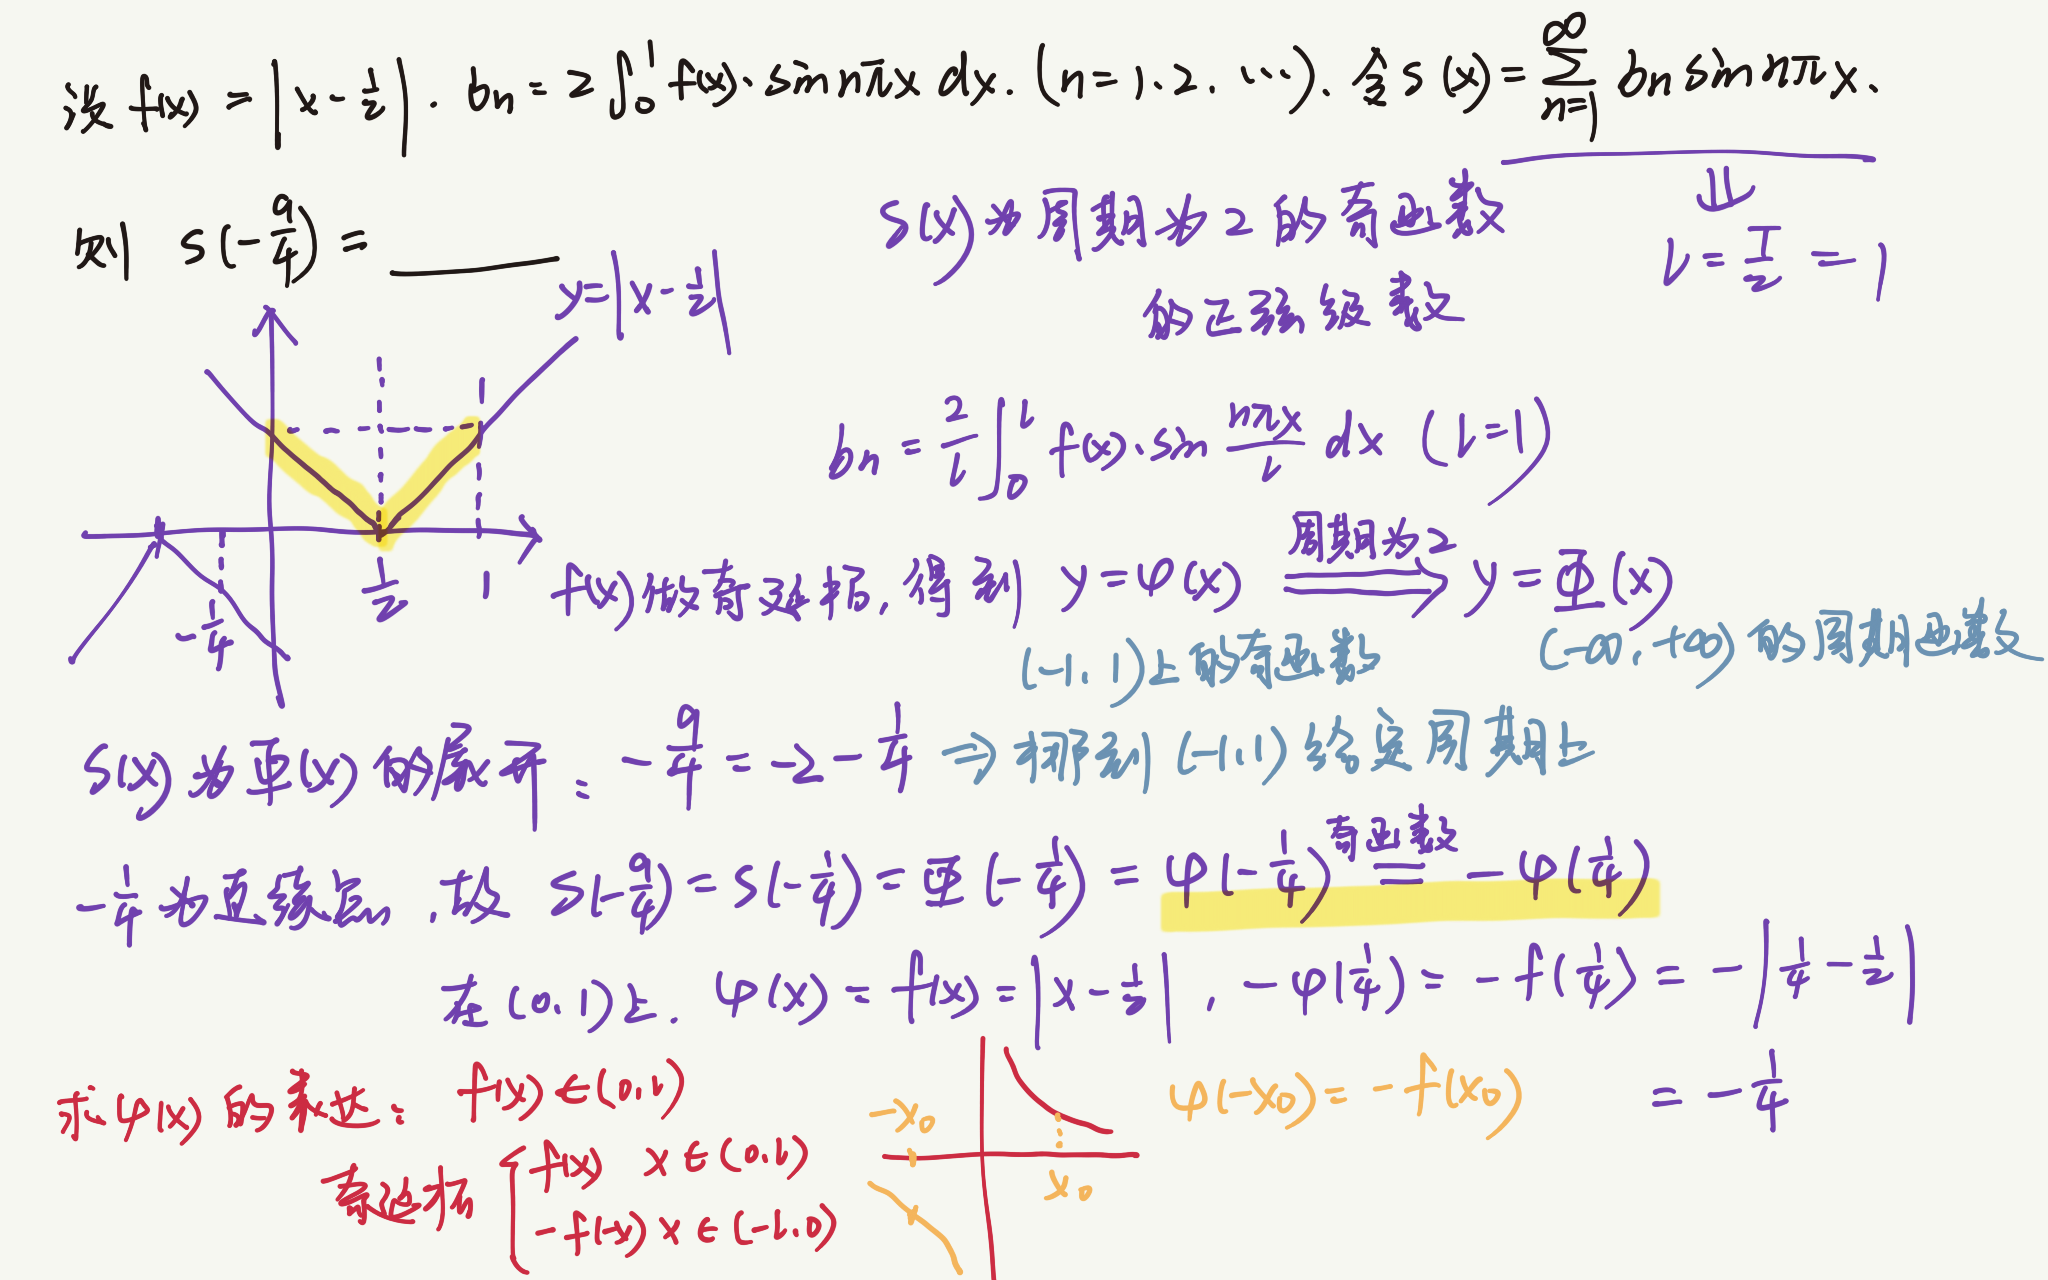 设 f(x) = |x - 1/2|. bn = 2∫₀¹ f(x)·sin nπx dx. (n = 1.2. ⋯). 令 S(x) = ∑_{n=1}^{∞} bn sin nπx.
则 S(-9/4) = ______
S(x) 为周期为2的奇函数
的正弦级数
⇓
l = T/2 = 1
y = |x - 1/2|
1/2
1
-1/4
bn = 2/l ∫₀^l f(x)·sin nπx/l dx (l=1)
f(x) 做奇延拓, 得到 y = φ(x) 周期为2 ⟹ y = Φ(x)
(-1, 1)上的奇函数
(-∞, +∞) 的周期函数
S(x) 为 Φ(x) 的展开: -9/4 = -2 - 1/4 ⇒ 挪到 (-1,1) 给定周期上
-1/4 为连续点, 故 S(-9/4) = S(-1/4) = Φ(-1/4) = φ(-1/4) 奇函数 = -φ(1/4)
在(0,1)上. φ(x) = f(x) = |x - 1/2|, -φ(1/4) = -f(1/4) = -|1/4 - 1/2|
= -1/4
求φ(x) 的表达: f(x) ∈ (0,l)
奇延拓 { f(x) x ∈ (0.l)
-f(-x) x ∈ (-l.0)
-x₀
x₀
φ(-x₀) = -f(x₀)